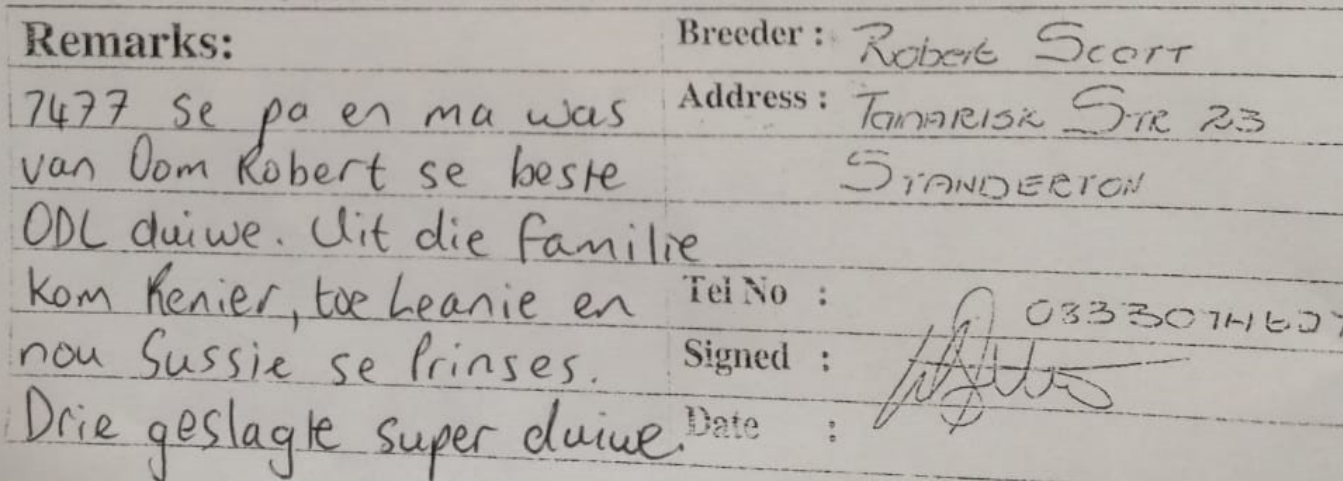 Remarks:
7477 se pa en ma was
van Oom Robert se beste
ODL duiwe. Uit die familie
kom Renier, toe Leanie en
nou Sussie se Prinses.
Drie geslagte super duiwe.
Breeder : Robert Scott
Address : Tamarisk Str 23
Standerton
Tel No :
Signed :
Date :